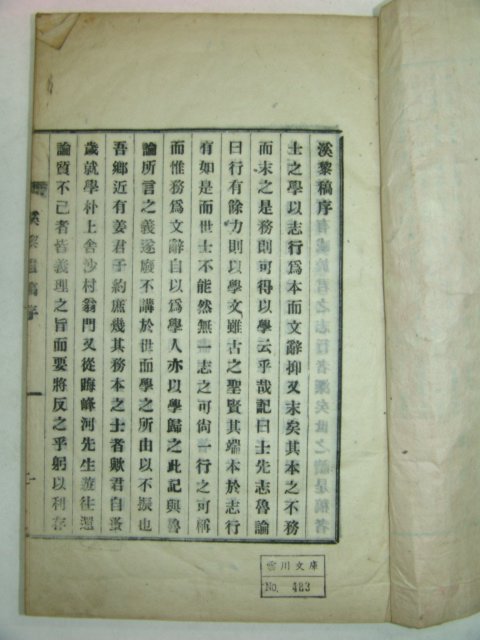 溪黎稿序
士之學以志行爲本而文辭抑又末矣其本之不務
而末之是務則可得以學云乎哉記曰士先志魯論
曰行有餘力則以學文雖古之聖賢其端本於志行
有如是而世士不能然無一志之可尙一行之可稱
而惟務爲文辭自以爲學人亦以學歸之此記與魯
論所言之義遂廢不講於世而學之所由以不振也
吾鄉近有姜君子約庶幾其務本之士者歟君自蚤
歲就學朴上舍沙村翁門又從晦峰河先生遊往還
論質不已者皆義理之旨而要將反之乎躬以利存
溪黎 稿序
雲川文庫
No. 483